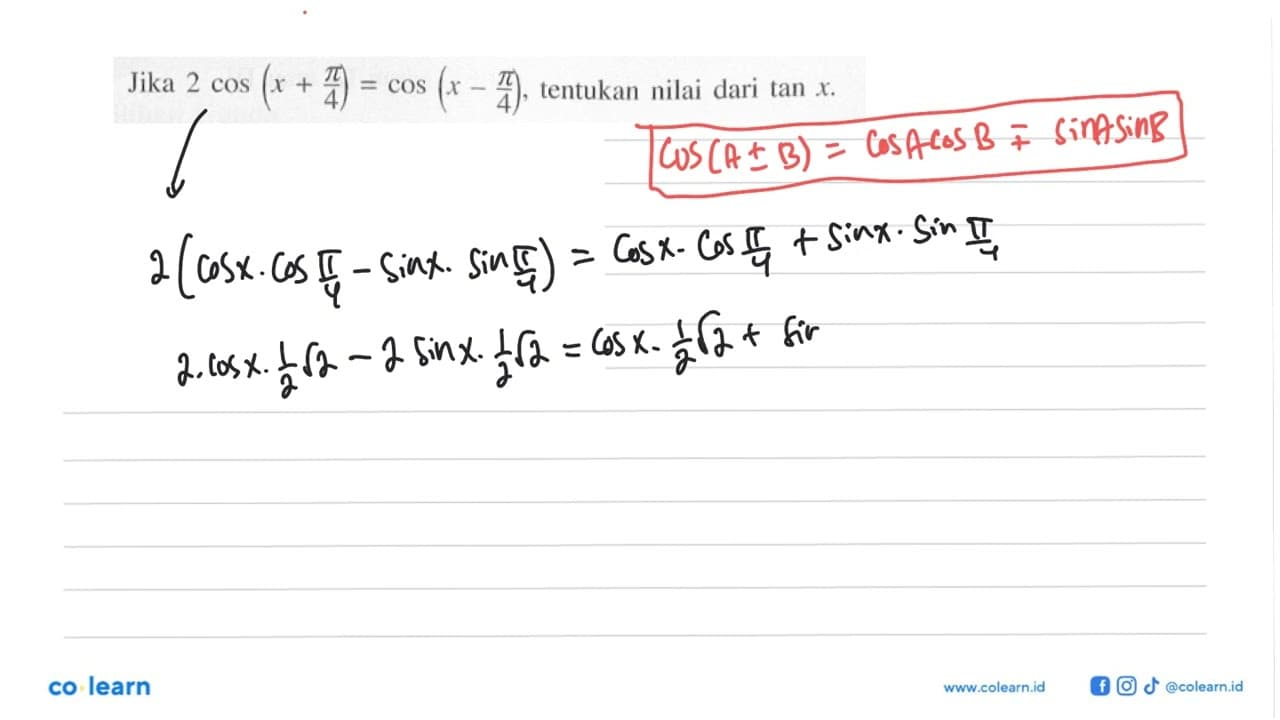 Jika 2 cos (x + π/4) = cos (x − π/4), tentukan nilai dari tan x.
Cos(A ± B) = CosA·Cos B ∓ SinA SinB
2(Cosx·Cos π/4 − Sinx· Sin π/4) = Cosx· Cos π/4 + Sinx· Sin π/4
2·Cosx·1/2√2 − 2 Sinx·1/2√2 = Cosx·1/2√2 + Sin
co learn
www.colearn.id
@colearn.id